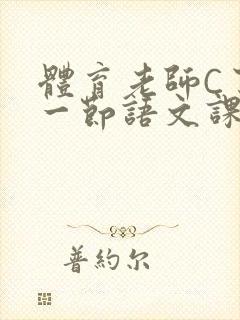 體育老師C了
一節語文課
普約尔